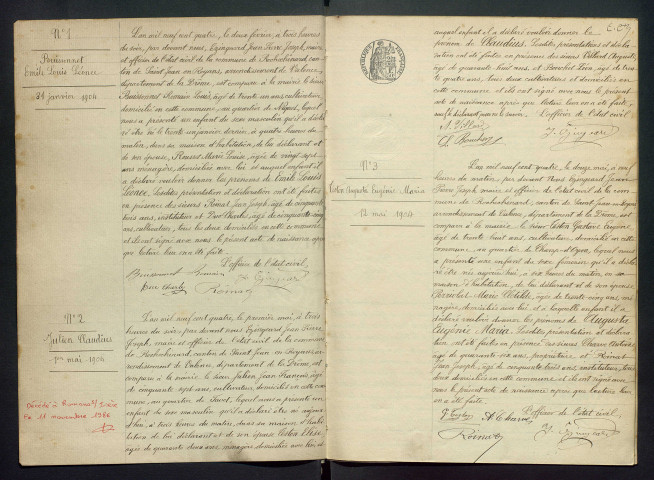 N° 1
Émile Louis Léonce
31 janvier 1904
L'an mil neuf cent quatre, le deux février, à trois heures
du soir, par devant nous, Joseph, maire
et officier de l'état civil de la commune de Rochechinard, can-
ton de Saint Jean en Royans, arrondissement de Valence,
département de la Drôme, est comparu à la mairie
Louis, âgé de trente un ans, cultivateur,
domicilié en cette commune, au quartier de lequel
nous a présenté un enfant de sexe masculin qu'il a décla-
ré être né le trente un janvier dernier, à quatre heures du
matin, dans sa maison d'habitation, de lui déclarant et
de son épouse, Marie Louise, âgée de vingt sept
ans, ménagère, domiciliée avec lui, et auquel enfant il a
déclaré vouloir donner les prénoms de Émile Louis
Léonce. Lesdites présentation et déclaration ont été faites
en présence des sieurs Jean Joseph, âgé de cinquante
trois ans, instituteur et Duc Charles, âgé de cinquante cinq
ans, cultivateur, tous les deux domiciliés en cette commune
et ils ont signé avec nous le présent acte de naissance après
que lecture leur en a été faite.
L'officier de l'état civil,
Duc Charles
N° 2
Julien Claudius
1er mai 1904
Décédé à Romans s/ Isère
le 11 novembre 1986
L'an mil neuf cent quatre, le premier mai, à trois
heures du soir, par devant nous Jean Pierre
Joseph, maire et officier de l'état civil de la commune
de Rochechinard, canton de Saint Jean en Royans, ar-
rondissement de Valence, département de la Drôme, est
comparu à la mairie le sieur Julien Jean François, âgé
de cinquante sept ans, cultivateur, domicilié en cette com-
mune, au quartier de lequel nous a présenté un
enfant de sexe masculin qu'il a déclaré être né aujour-
d'hui, à trois heures du matin, dans sa maison d'habi-
tation de lui déclarant et de son épouse
âgée de quarante deux ans, ménagère domiciliée avec lui et
auquel enfant il a déclaré vouloir donner le
prénom de Claudius. Lesdites présentation et décla-
ration ont été faites en présence des sieurs
âgé de quarante huit ans, et âgé de
quatre ans, tous deux cultivateurs et domiciliés en
cette commune et ils ont signé avec nous le présent
acte de naissance après que lecture leur en a été faite,
L'officier de l'état civil
N° 3
Augusta Eugénie Maria
12 mai 1904
L'an mil neuf cent quatre, le douze mai, à
heures du matin, par devant nous Jean
Pierre Joseph, maire et officier de l'état civil de la com-
mune de Rochechinard, canton de Saint Jean en Royans
arrondissement de Valence, département de la Drôme, est
comparu à la mairie, le sieur Gustave Eugène,
âgé de trente huit ans, cultivateur, domicilié en cette
commune, au quartier de lequel nous
a présenté une enfant de sexe féminin qu'il a décla-
ré être née aujourd'hui, à six heures du matin, en sa
maison d'habitation, de lui déclarant et de son épouse,
Marie Clotilde, âgée de trente cinq ans, mé-
nagère domiciliée avec lui et à laquelle enfant il a
déclaré vouloir donner les prénoms de Augusta
Eugénie Maria. Lesdites présentation et déclara-
tion ont été faites en présence des sieurs Charve
âgé de quarante six ans, propriétaire et
Jean Joseph, âgé de cinquante trois ans, instituteur, tous
deux domiciliés en cette commune et ils ont signé avec
nous le présent acte de naissance après que lecture leur
en a été faite.
L'officier de l'état civil,